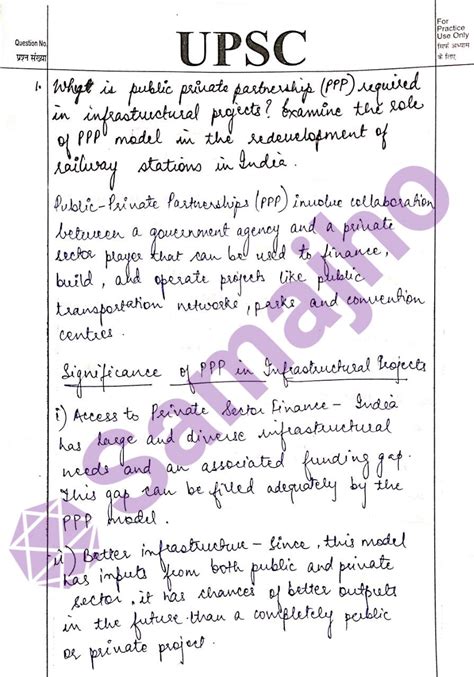 Question No.
प्रश्न संख्या
UPSC
For
Practice
Use Only
सिर्फ अभ्यास
के लिए
1. Why is public private partnership (PPP) required
in infrastructural projects? Examine the role
of PPP model in the redevelopment of
railway stations in India.
Public-Private Partnerships (PPP) involve collaboration
between a government agency and a private
sector player that can be used to finance,
build, and operate projects like public
transportation networks, parks and convention
centres.
Significance of PPP in Infrastructural Projects
i) Access to Private Sector Finance - India
has large and diverse infrastructural
needs and an associated funding gap.
This gap can be filled adequately by the
PPP model.
ii) Better infrastructure - Since, this model
has inputs from both public and private
sector, it has chances of better outputs
in the future than a completely public
or private project.
Samajho